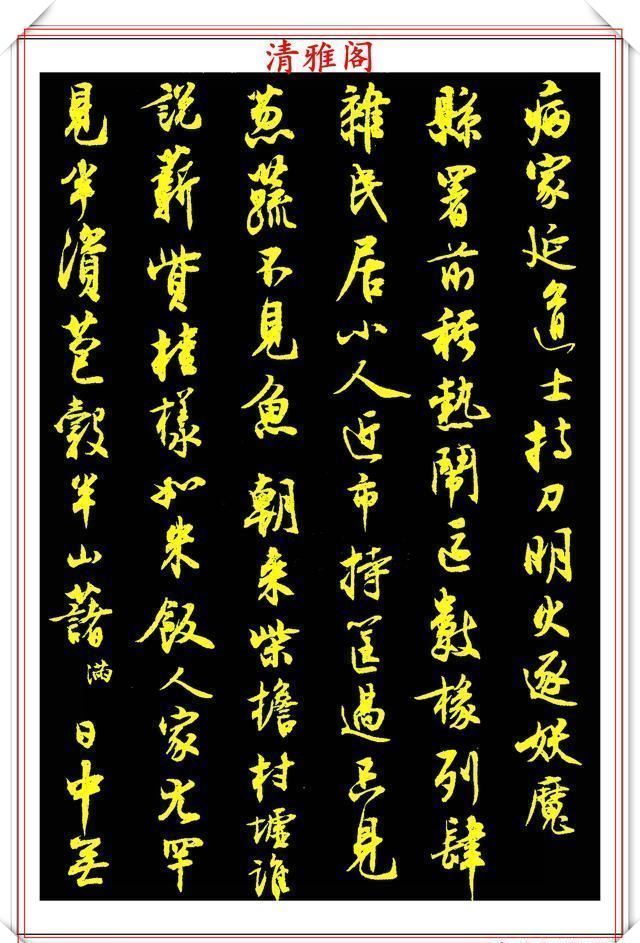 清雅阁
病家延道士持刀明火逐妖魔
縣署前稱熱鬧區數椽列肆
雜民居小人近市持筐過只見
蔥蔬不見魚朝來柴擔村墟誰
說薪貲桂樣如米飯人家尤罕
見半資苞穀半山藷滿日中無